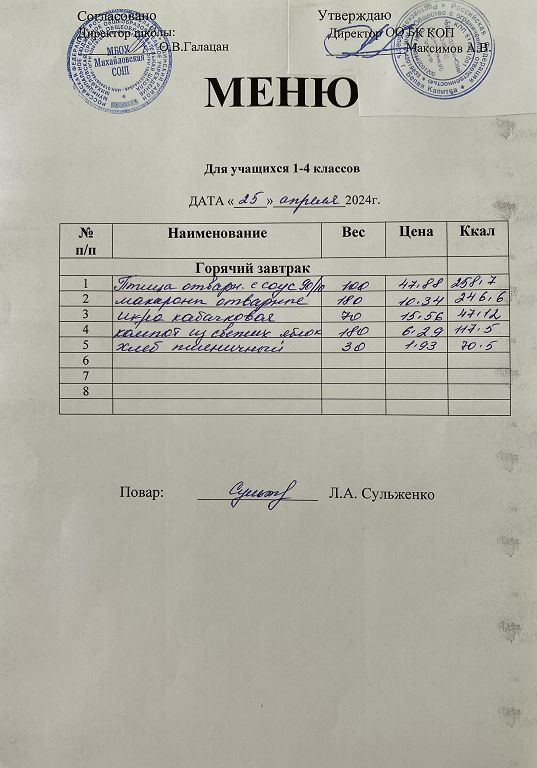 Согласовано Утверждаю
Директор школы: Директор ООБК КОП
О.В.Галацан Максимов А.В.
МБОУ
Михайловская
СОШ
МЕНЮ
Для учащихся 1-4 классов
ДАТА « 25 » апреля 2024г.
№ п/п Наименование Вес Цена Ккал
Горячий завтрак
1 Птица отварн. с соус 100 47.88 258,7
2 макароны отварные 180 10.34 246,6
3 икра кабачковая 70 15.56 47.12
4 компот из свежих яблок 180 6.29 117.5
5 хлеб пшеничный 30 1.93 70.5
6
7
8
Повар: Л.А. Сульженко